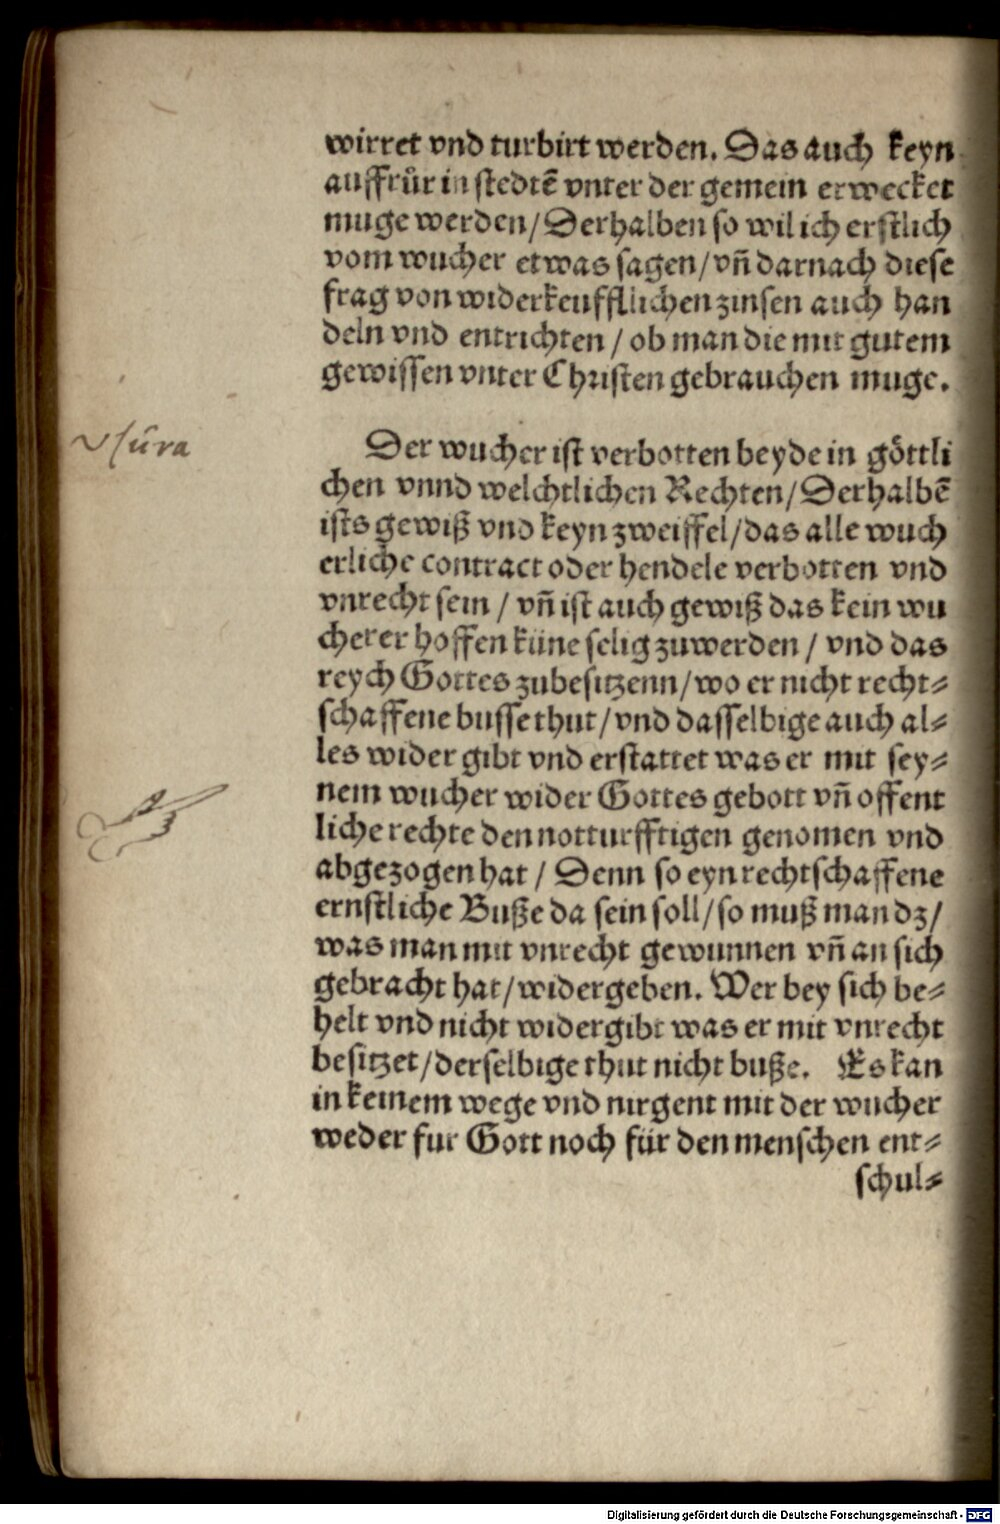 wirret vnd turbirt werden. Das auch keyn
auffrůr in stedtē vnter der gemein erwecket
muge werden/Derhalben so wil ich erstlich
vom wucher etwas sagen/vn̄ darnach diese
frag von widerkeufflichen zinsen auch han
deln vnd entrichten / ob man die mit gutem
gewissen vnter Christen gebrauchen muge.
vsura
Der wucher ist verbotten beyde in göttli
chen vnnd welchtlichen Rechten/Derhalbē
ists gewiß vnd keyn zweiffel/das alle wuch
erliche contract oder hendele verbotten vnd
vnrecht sein / vn̄ ist auch gewiß das kein wu
cherer hoffen küne selig zuwerden / vnd das
reych Gottes zubesitzenn/wo er nicht recht⸗
schaffene busse thut/vnd dasselbige auch al⸗
les wider gibt vnd erstattet was er mit sey⸗
nem wucher wider Gottes gebott vn̄ offent
liche rechte den notturfftigen genomen vnd
abgezogen hat / Denn so eyn rechtschaffene
ernstliche Buße da sein soll/so muß man dz/
was man mit vnrecht gewunnen vn̄ an sich
gebracht hat/widergeben. Wer bey sich be⸗
helt vnd nicht widergibt was er mit vnrecht
besitzet/derselbige thut nicht buße. Es kan
in keinem wege vnd nirgent mit der wucher
weder fur Gott noch für den menschen ent⸗
schul⸗
Digitalisierung gefördert durch die Deutsche Forschungsgemeinschaft - DFG